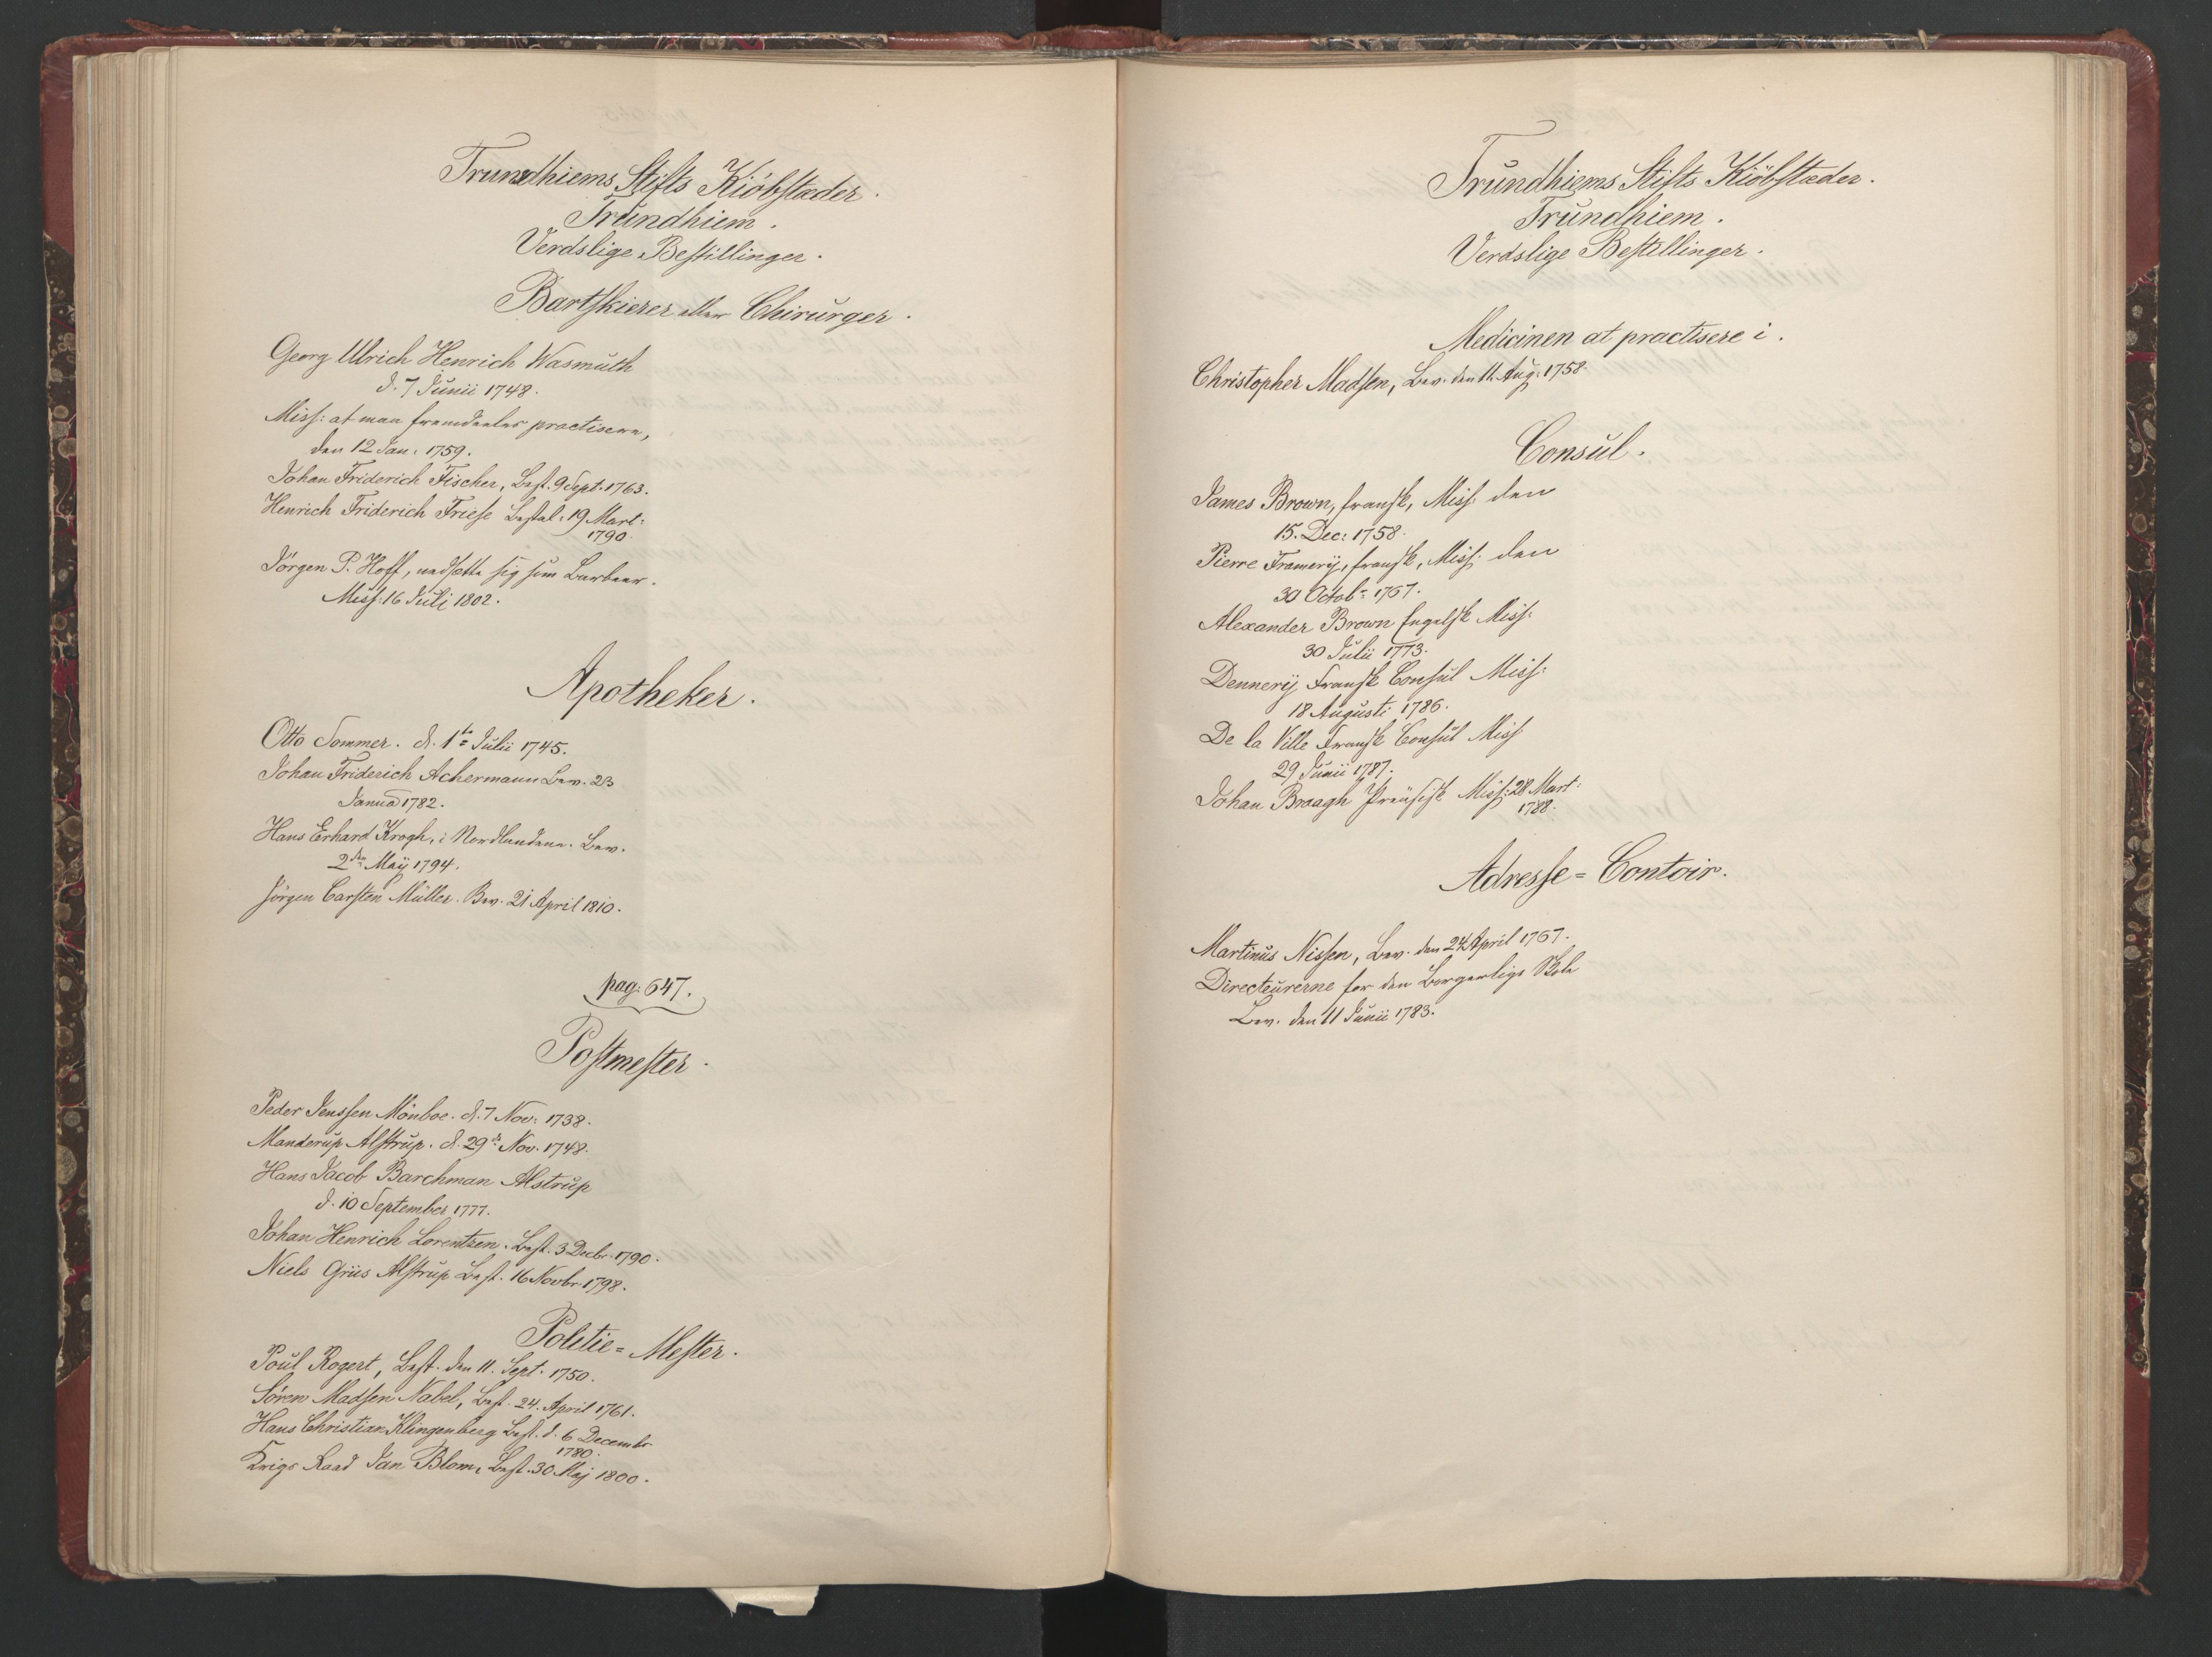 Trundhiems Stifts Kiöbstæder.
Trundhiem.
Verdslige Bestillinger.
Bartskierer eller Chirurger.
Georg Ulrich Henrich Wasmuth
d. 7 Junii 1748.
Miss: at maa fremdeeles practisere,
den 12 Jan: 1759.
Johan Friderich Fischer, Best. 9 Sept. 1763.
Henrich Friderich Friese Bestal. 19 Mart:
1790.
Jörgen P. Hoff, nedsætte sig som Barbeer.
Miss: 16 Juli 1802.
Apotheker.
Otto Sommer. d. 1te Julii 1745.
Johan Friderich Achermann Bev. 23
Janua 1782.
Hans Erhard Krogh, i Nordlandene. Bev.
2den Maÿ 1794.
Jörgen Carsten Müller. Bev. 21 April 1810.
pag: 647.
Postmester.
Peder Jenssen Mönboe. d. 7 Nov: 1738.
Manderup Alstrup. d. 29de Nov. 1748.
Hans Jacob Barchman Alstrup
d. 10 September 1777.
Johan Henrich Lorentzen. Best. 3 Decbr. 1790.
Niels Griis Alstrup Best. 16 Novbr. 1798.
Politie=Mester.
Poul Rogert, Best. den 11. Sept. 1750.
Sören Madsen Nabel, Best. 24. April 1761.
Hans Christian Klingenberg Best. d. 6 Decembr
1780.
Krigs Raad Jan Blom, Best. 30 Maj 1800.
Trundhiems Stifts Kiöbstæder.
Trundhiem.
Verdslige Bestillinger.
Medicinen at practisere i.
Christopher Madsen, Bev. den 11. Aug: 1758.
Consul.
James Brown, fransk, Miss: den
15. Dec: 1758.
Pierre Framerÿ, fransk, Miss: den
30 Octobr: 1767.
Alexander Brown Engelsk Miss:
30 Julii 1773.
Dennerÿ Fransk Consul Miss:
18 Augusti 1786.
De la Ville Fransk Consul Miss
29 Junii 1787.
Johan Braagh Preusisk Miss: 28 Mart:
1788.
Adresse=Contoir.
Martinus Nissen, Bev. den 24 April 1767.
Directeurerne for den Borgerlige Skole
Bev. den 11 Junii 1783.